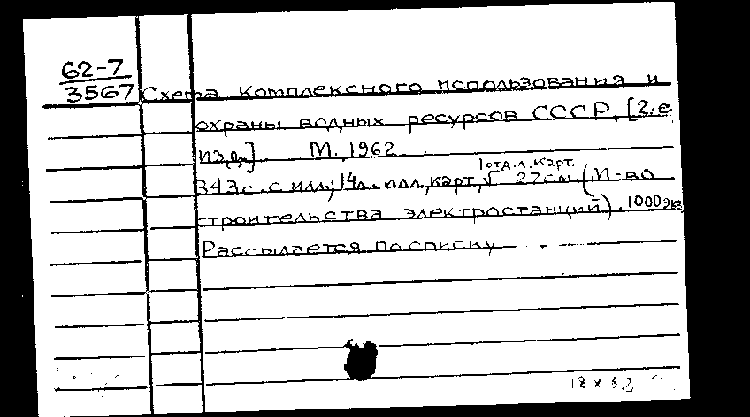 62-7
3567 Схема комплексного использования и
охраны водных ресурсов СССР. [2.е
изд.] М., 1962.
343с. с илл; 14л. илл., карт., 1 отд. л. карт. 27см (М-во
строительства электростанций). 1000экз
Рассылается по списку